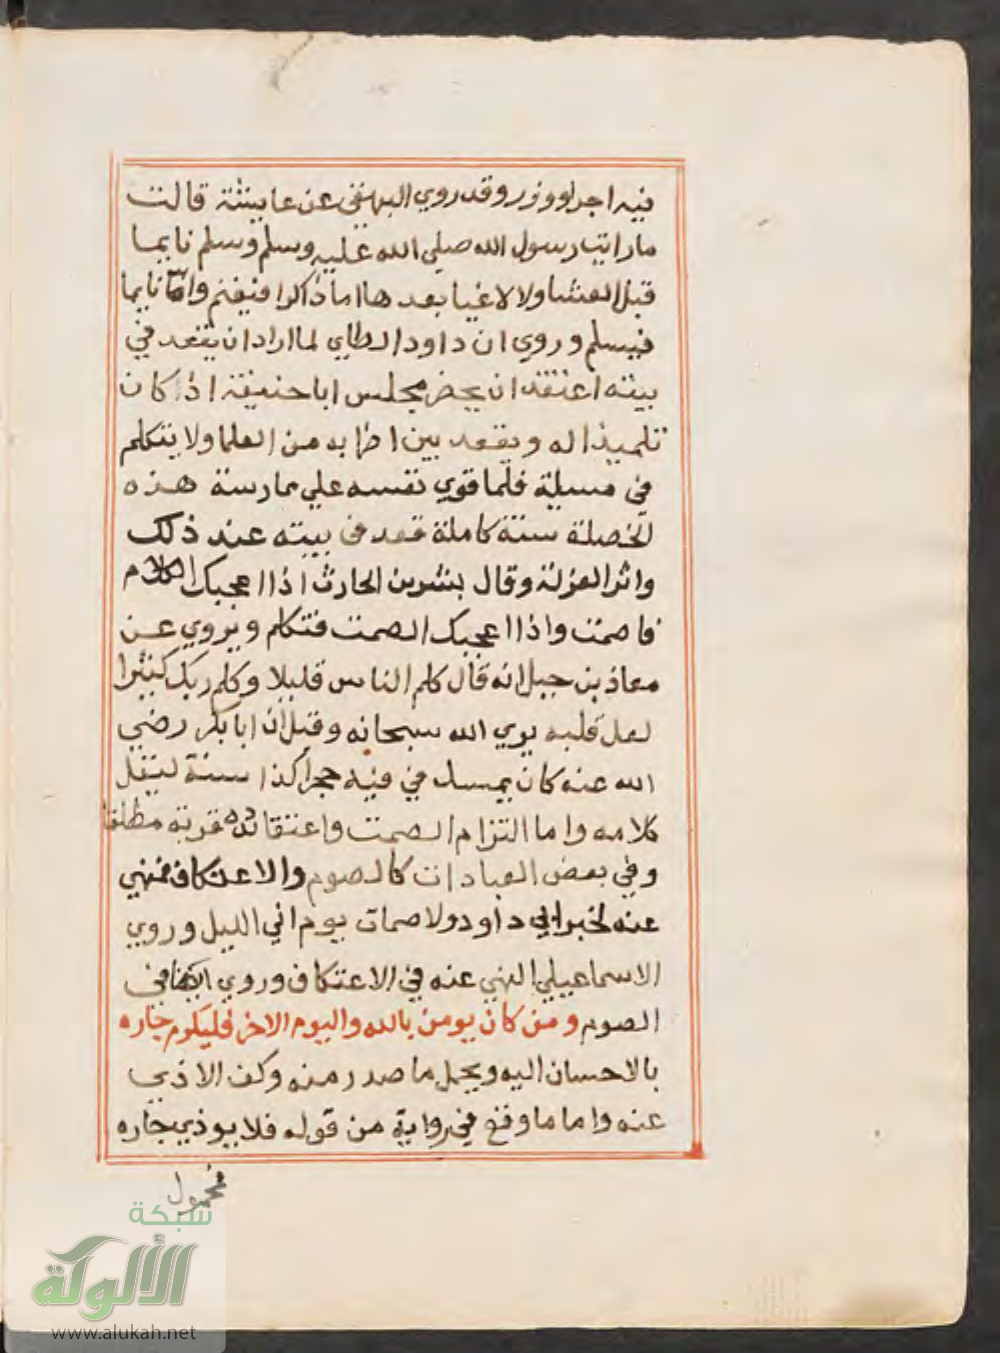 فيه اجر او وزر وقد روي البيهقي عن عايشة قالت
ما رايت رسول الله صلي الله عليه وسلم وسلم نايما
قبل العشا ولا لاغيا بعدها اما ذاكرا فيغنم واما نايما
فيسلم وروي ان داود الطاي لما اراد ان يقعد في
بيته اعتقد ان يحضر مجلس ابا حنيفة اذا كان
تلميذا له ويقعد بين اضرابه من العلما ولا يتكلم
في مسيلة فلما قوي نفسه علي ممارسة هذه
الخصلة سنة كاملة قعد في بيته عند ذلك
واثر العزلة وقال بشر بن الحارث اذا اعجبك الكلام
فاصمت واذا اعجبك الصمت فتكلم ويروي عن
معاذ بن جبل انه قال كلم الناس قليلا وكلم ربك كثيرا
لعل قلبه يري الله سبحانه وقيل ان ابا بكر رضي
الله عنه كان يمسك في فيه حجرا كذا سنة ليقل
كلامه واما التزام الصمت واعتقاده قربة مطلقا
وفي بعض العبادات كالصوم والاعتكاف فمنهي
عنه لخبر ابي داود ولا صمات يوم الي الليل وروي
الاسماعيلي النهي عنه في الاعتكاف وروي ايضا في
الصوم ومن كان يومن بالله واليوم الاخر فليكرم جاره
بالاحسان اليه ويحمل ما صدر منه وكف الاذي
عنه واما ما وقع في رواية من قوله فلا يوذي جاره
فمحمول
شبكة
الألوكة
www.alukah.net